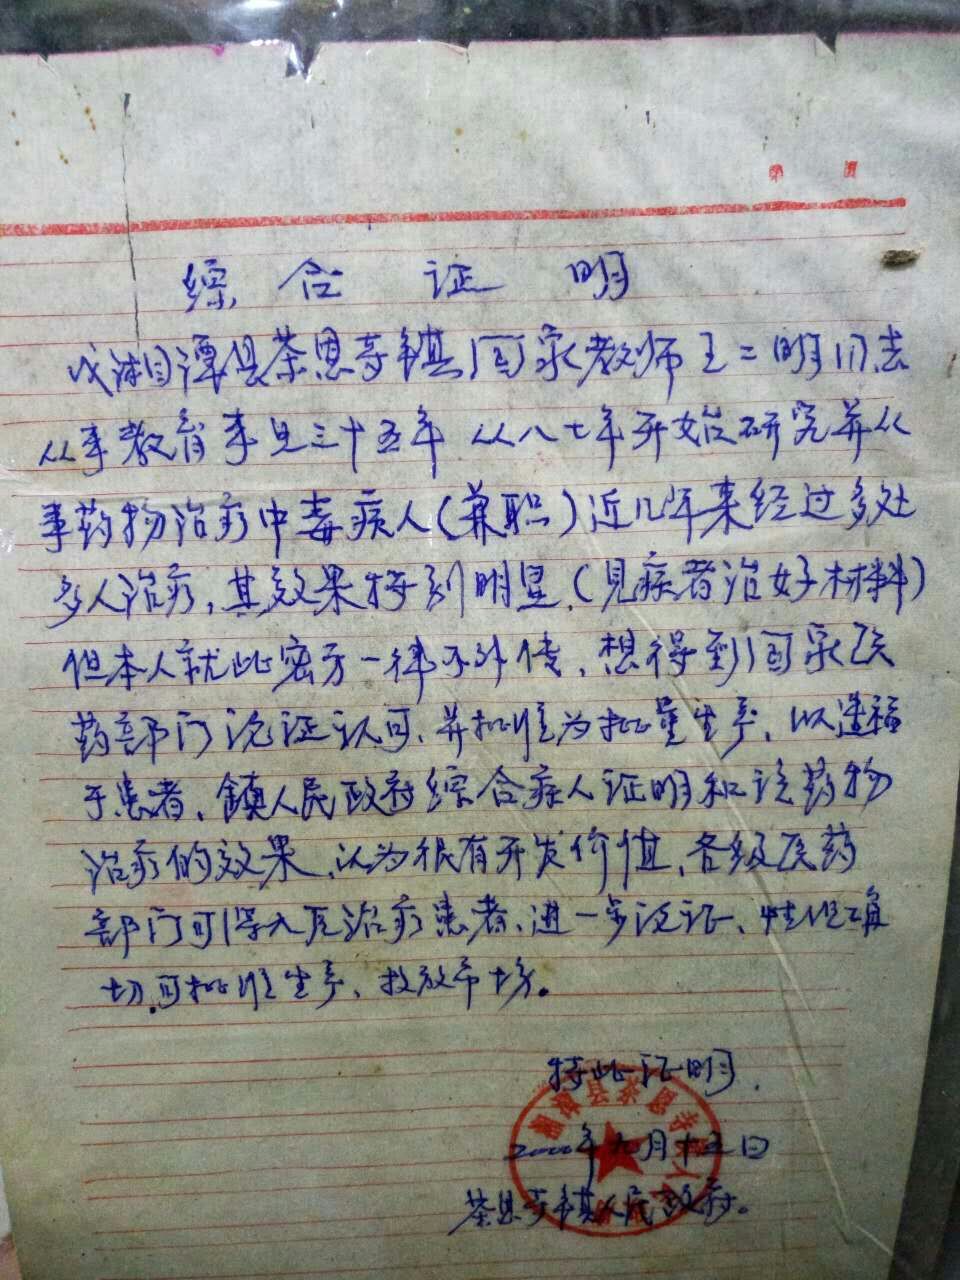 第 页
综合证明
我湘潭县茶恩寺镇国家教师王二明同志
从事教育事业三十五年 从八七年开始研究并从
事药物治疗中毒病人(兼职)近几年来经过多处
多人治疗,其效果特别明显,(见病者治好材料)
但本人就此密方一律不外传,想得到国家医
药部门论证认可、并批准为批量生产,以造福
于患者,镇人民政府综合病人证明和该药物
治疗的效果,认为很有开发价值,各级医药
部门可深入于治疗患者、进一步论证、性但确
切.可批准生产、投放市场。
特此证明.
二〇〇〇年九月十五日
茶恩寺镇人民政府。
湘潭县茶恩寺镇人民政府